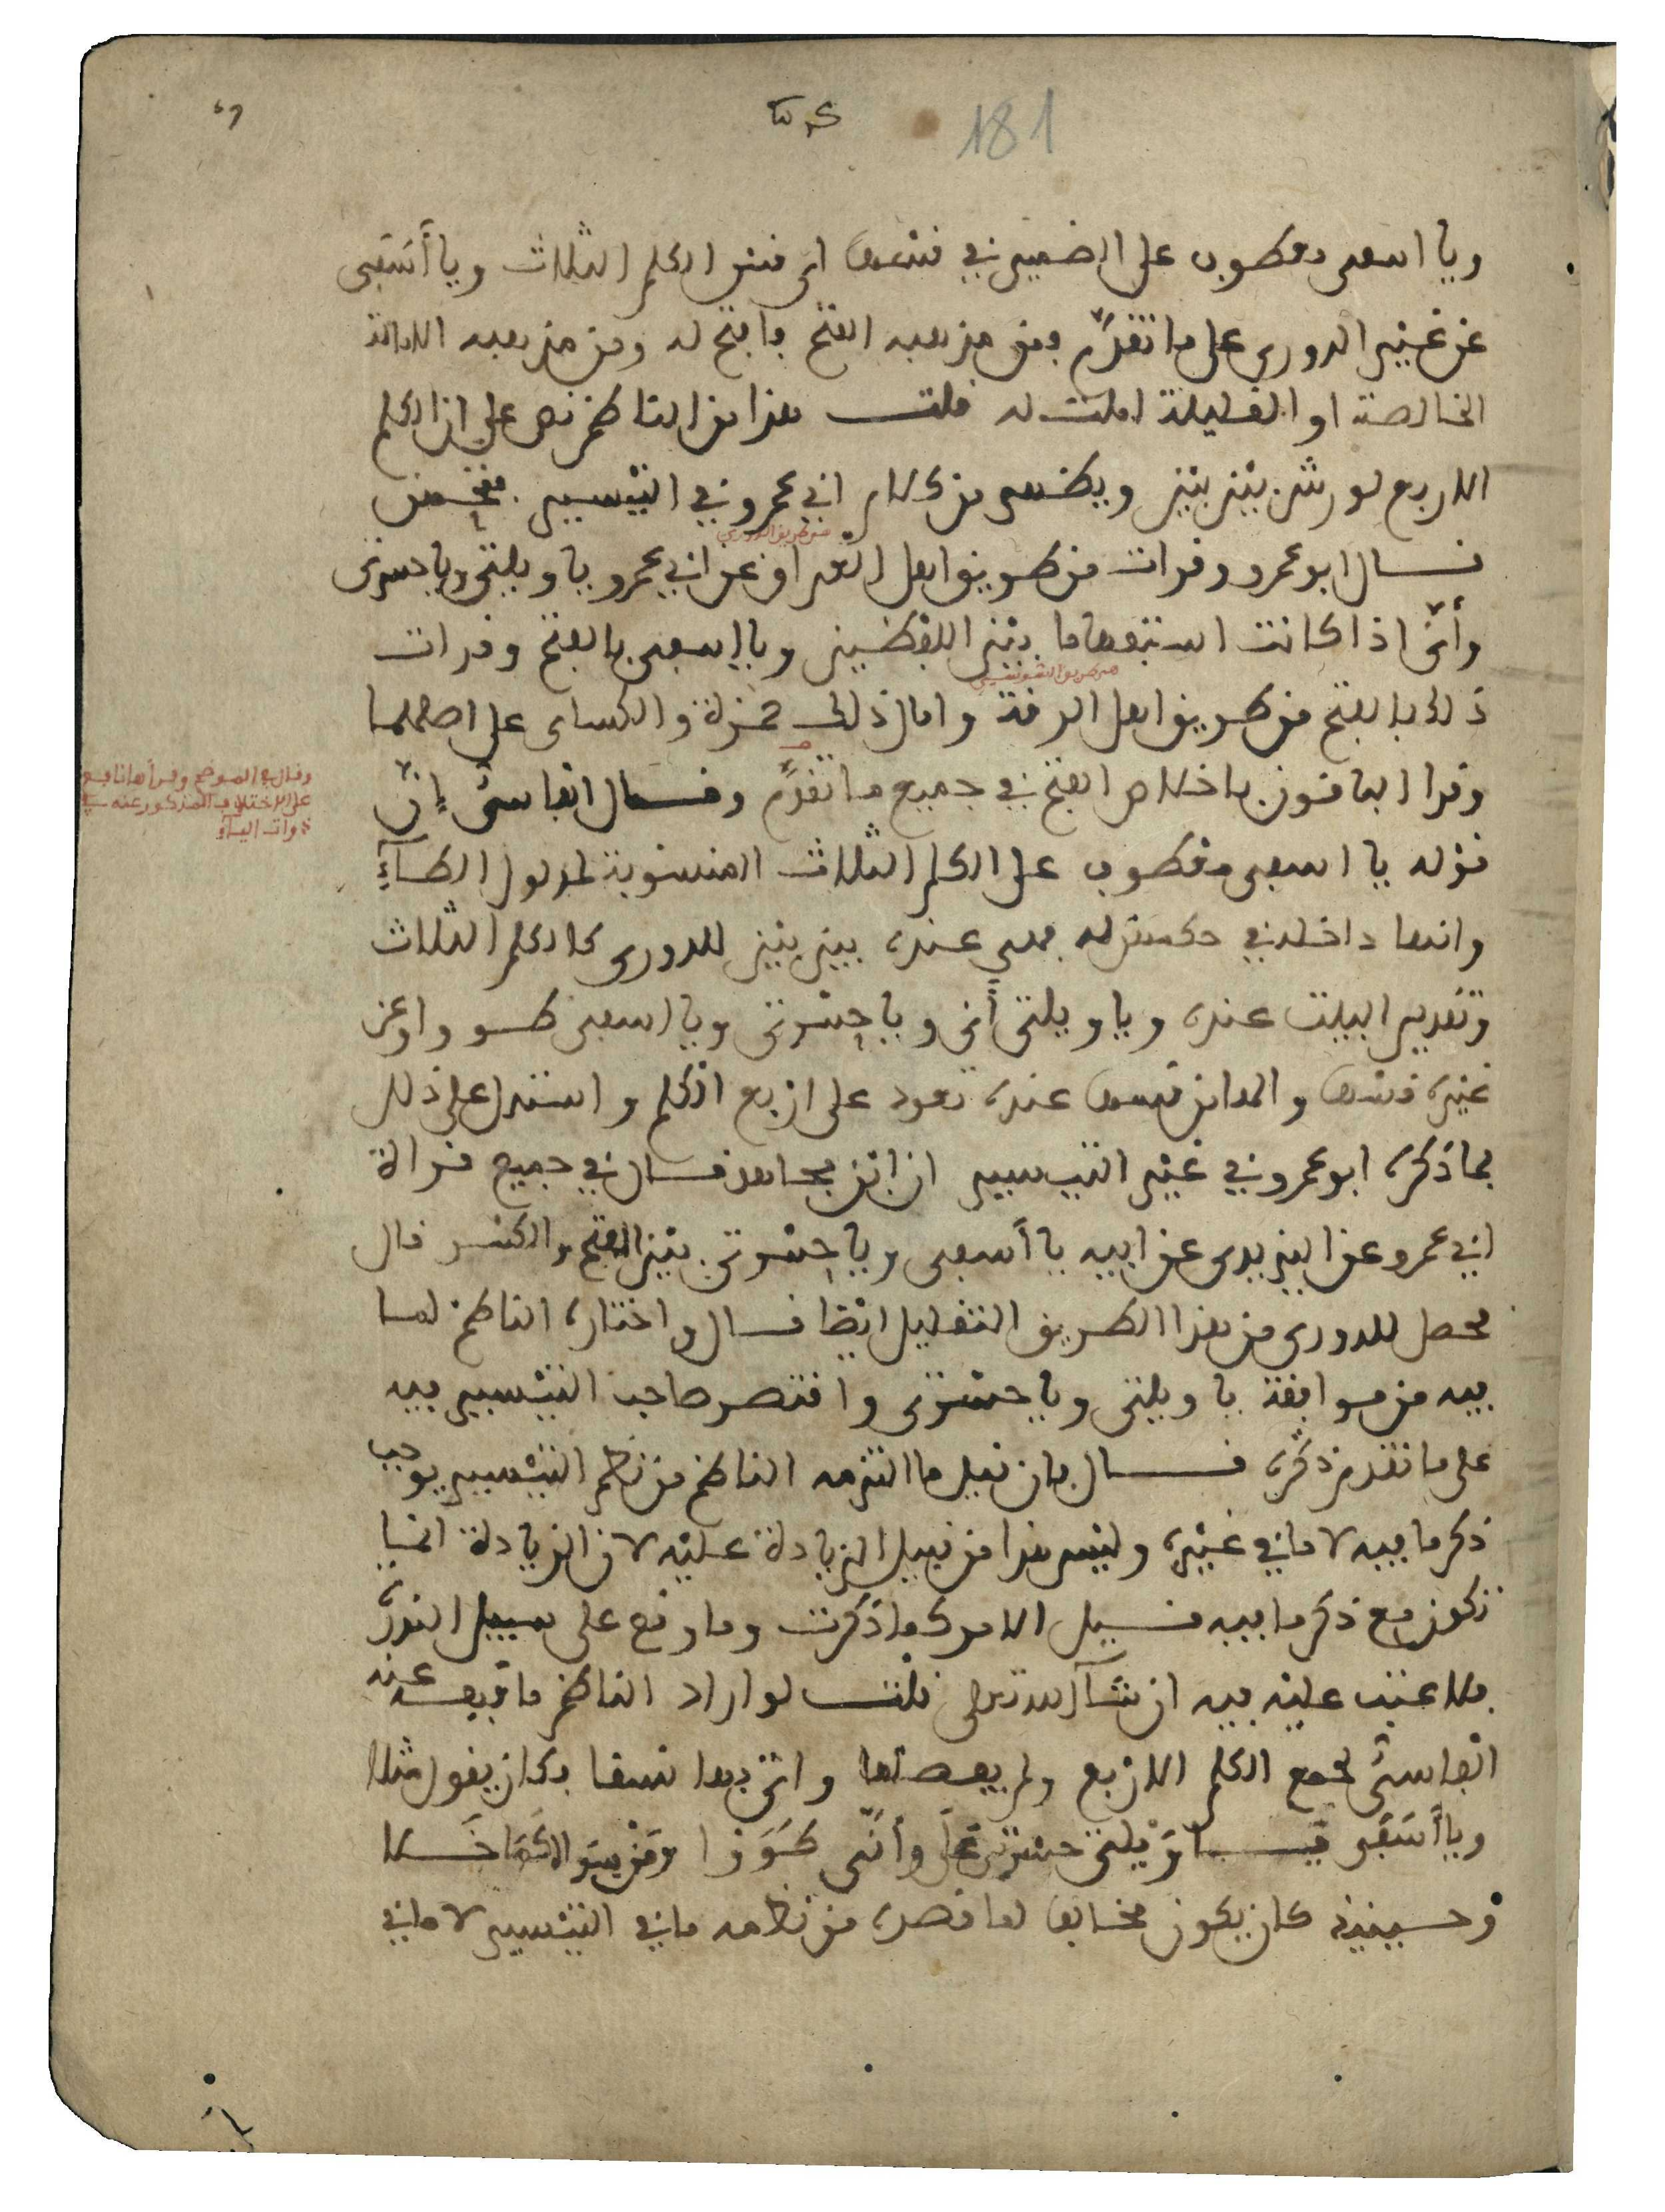 181
ويا اسفى معطوف على الضمير في قسها اي قس الكلم الثلاث ويا أسَفى
عن غير الدوري على ما تقدّم فمن مذهبه الفتح فافتح له ومن مذهبه الامالة
الخالصة او القليلة املت له قلت هذا من الناظم نص على ان الكلم
الاربع لورش بين بين ويظهر من كلام ابي عمرو في التيسير
قال ابو عمرو وقرات من طريق اهل العراق عن ابي عمرو يا ويلتى ويا حسرتى
من طريق الدوري
وأنّى اذا كانت استفهاما بين اللفظين ويا اسفى بالفتح وقرات
من طريق السوسي
ذلك بالفتح من طريق اهل الرقة وامال ذلك حمزة والكسائي على اصلهما
وقرا الباقون باخلاص الفتح في جميع ما تقدّم وقال الفاسي إنّ
وقال في الموضح وقرأها نافع
على الاختلاف المذكور عنه في
ذوات الياء
قوله يا اسفى معطوف على الكلم الثلاث المنسوبة لمدلول الطاءِ
وانها داخلة في حكمهن فهي عنده بين بين للدوري كالكلم الثلاث
وتقدير البيت عنده ويا ويلتى أنى ويا حسرتى ويا اسفى طووا وعن
غيره قسها والهاء من قسها عنده تعود على اربع الكلم واستدل على ذلك
بما ذكره ابو عمرو في غير التيسير ان ابن مجاهد قال في جميع قراءة
ابي عمرو عن اليزيدي عن ابيه يا أسفى ويا حسرتى بين الفتح والكسر قال
فحصل للدوري من هذا الطريق التقليل ايضا قال واختاره الناظم لما
فيه من موافقة يا ويلتى ويا حسرتى واقتصر صاحب التيسير فيه
على ما تقدم ذكره قال فان قيل ما التزمه الناظم من نظم التيسير يوجب
ذكر ما فيه لا ما في غيره وليس هذا من قبيل الزيادة عليه لان الزيادة انما
تكون مع ذكر ما فيه قيل الامر كما ذكرت وما وقع على سبيل الندرة
فلا عتب عليه فيه ان شاء الله تعالى قلت لو اراد الناظم ما فهمه عنه
الفاسي لجمع الكلم الاربع ولم يفصلها واتى بها نسقا فكان يقول مثلا
ويا أسَفى يـا وَيْلتى حسْرتى عَلَى وأنّى طَوَوا
وحينئذ كان يكون مخالفا لما قصده من نظمه ما في التيسير لا ما في